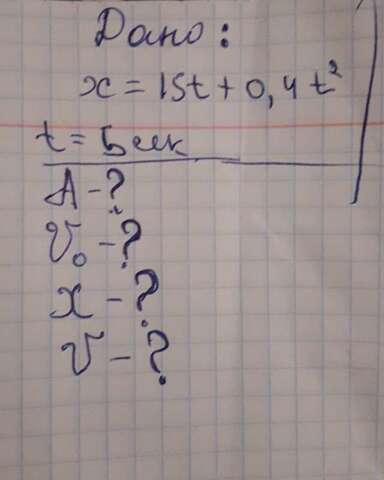 Дано:
x = 15t + 0,4t²
t = 5 сек
A - ?
V₀ - ?
x - ?
V - ?